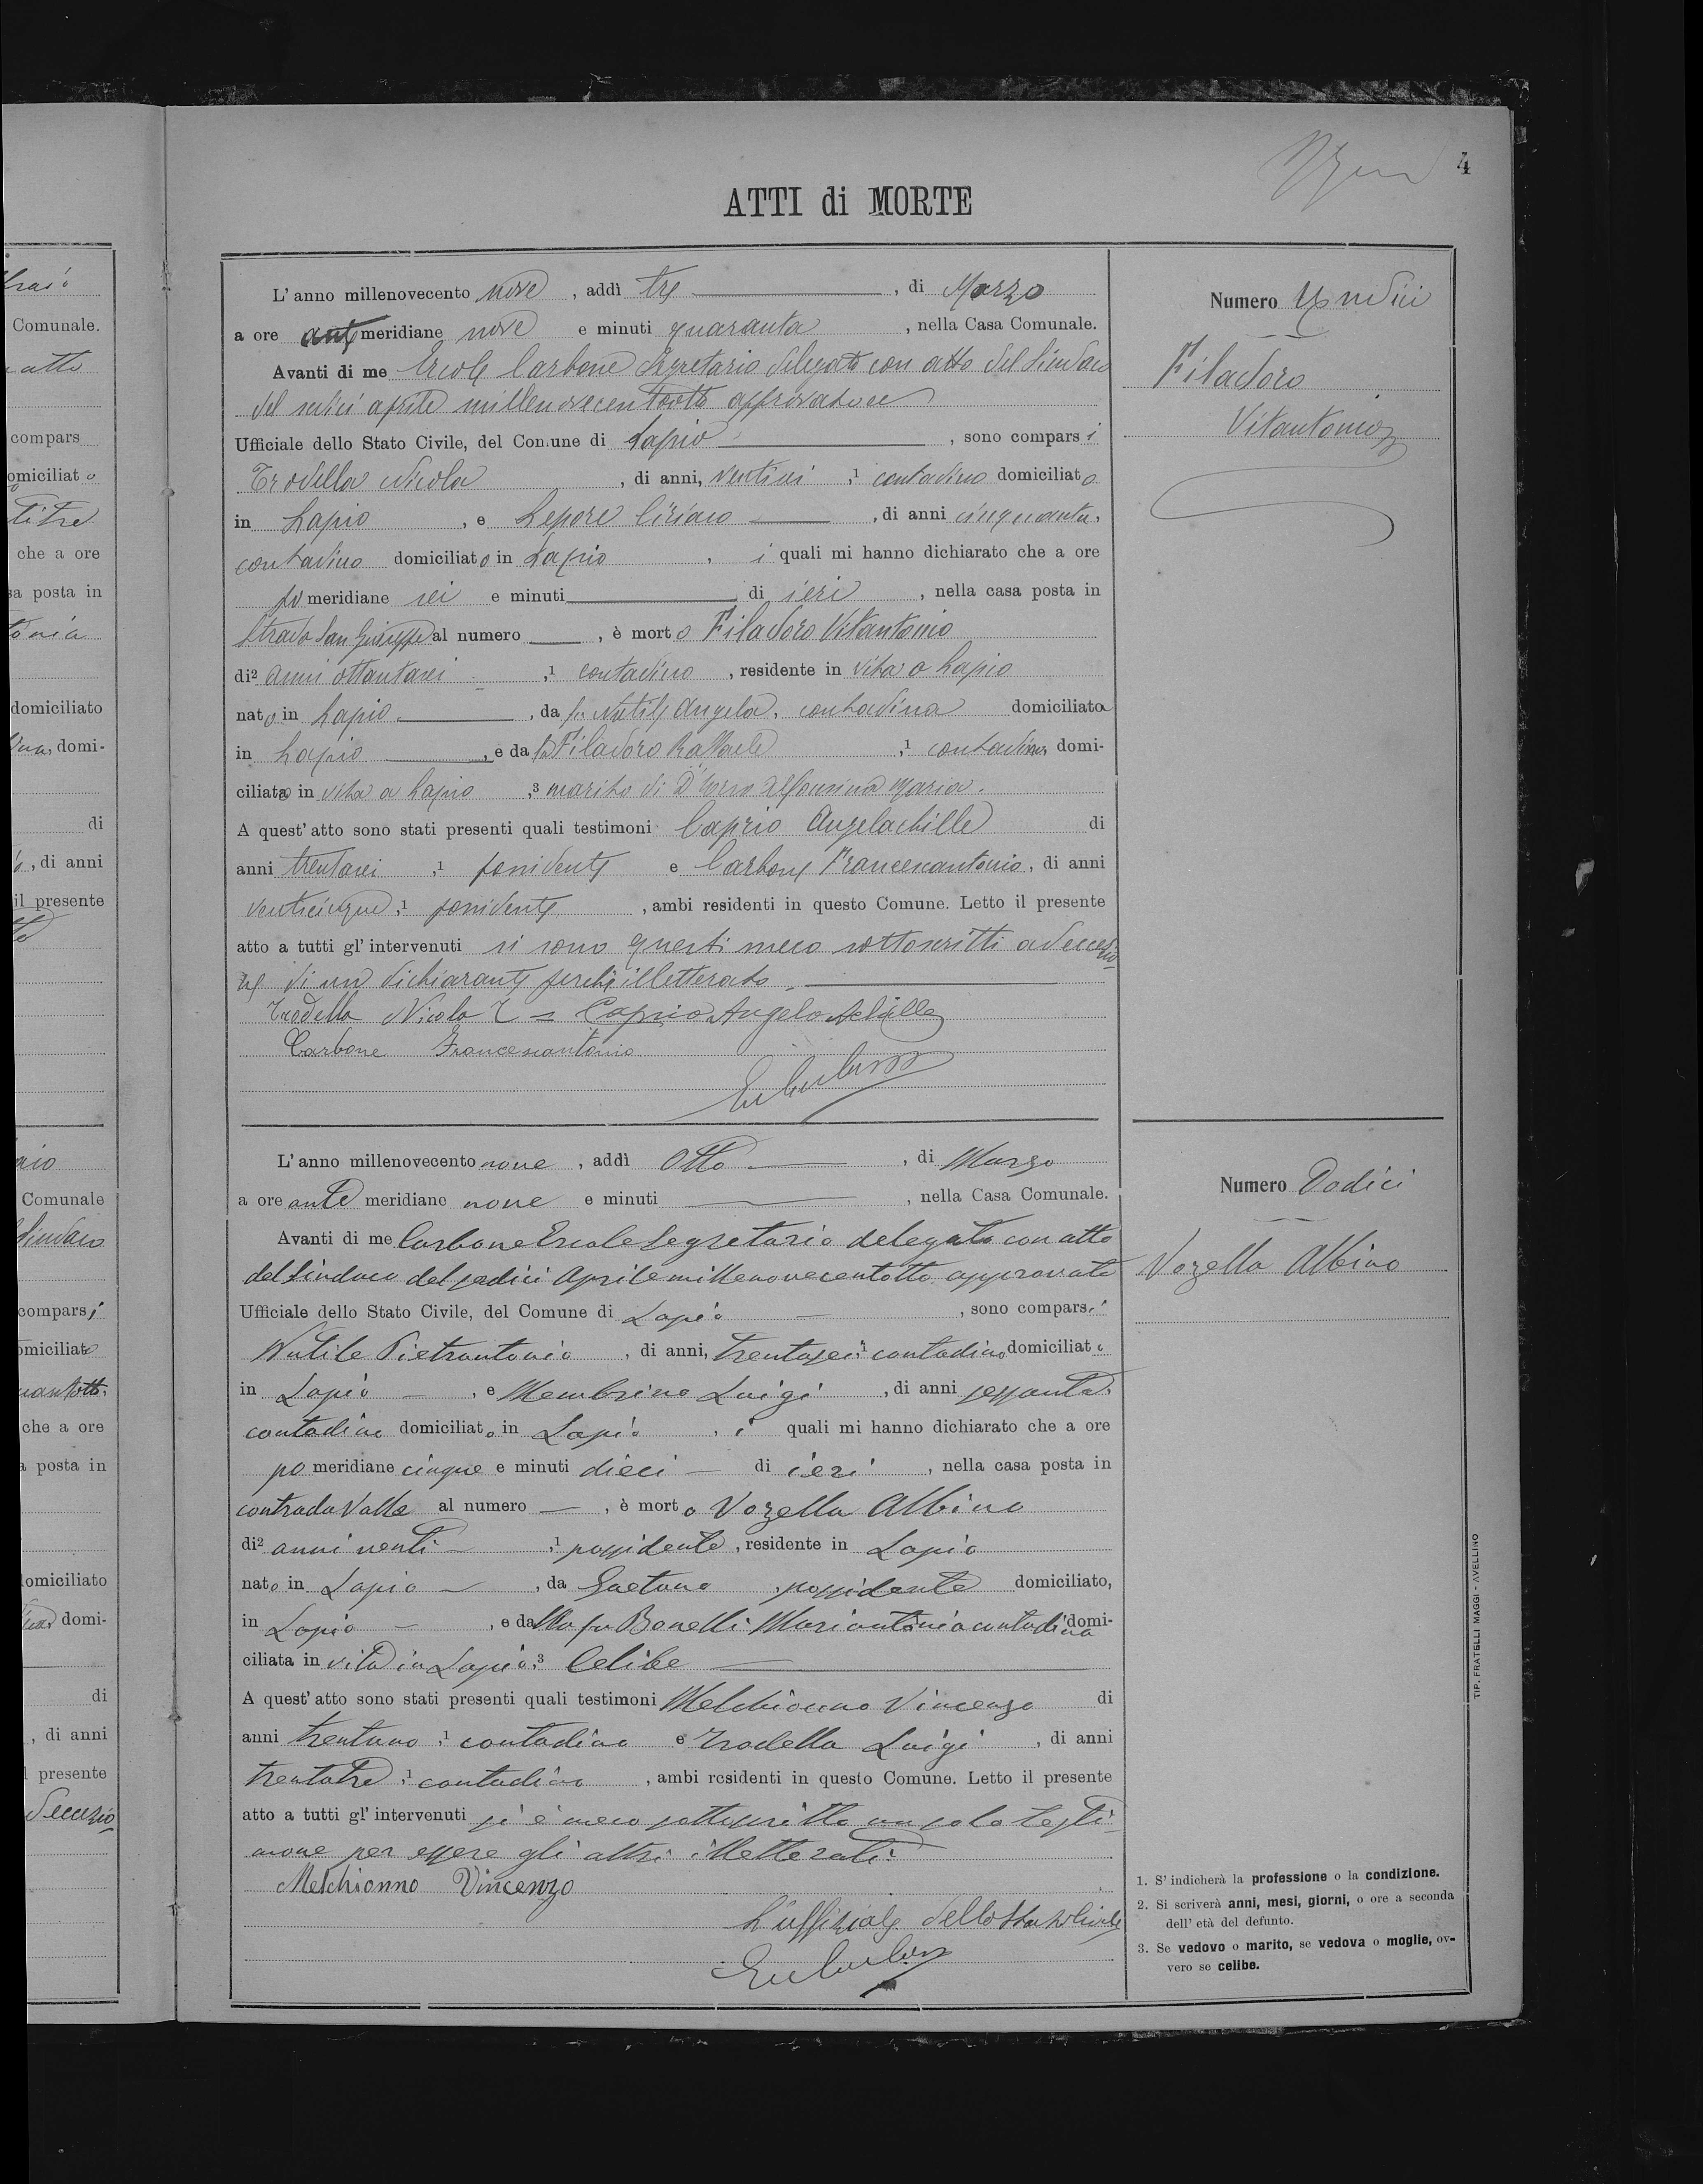 4
ATTI di MORTE
L'anno millenovecento nove, addì tre, di Marzo
a ore antemeridiane nove e minuti quaranta, nella Casa Comunale.
Avanti di me Ercole Carbone Segretario delegato con atto del Sindaco
del sedici aprile millenovecentootto approvato
Ufficiale dello Stato Civile, del Comune di Lapio, sono comparsi
Trodella Nicola, di anni, ventisei,¹ contadino domiciliato
in Lapio, e Lepore Ciriaco, di anni cinquanta,
contadino domiciliato in Lapio, i quali mi hanno dichiarato che a ore
pomeridiane sei e minuti di ieri, nella casa posta in
Strada San Giuseppe al numero, è morto Filadoro Vitantonio
di² anni ottantasei,¹ contadino, residente in vita a Lapio
nato in Lapio, da fu Nutile Angela, contadina domiciliata
in Lapio, e da fu Filadoro Raffaele,¹ contadino domi-
ciliato in vita a Lapio,³ marito di Alfonsina Maria.
A quest'atto sono stati presenti quali testimoni Caprio Angelachille di
anni trentasei,¹ possidente e Carbone Francescantonio, di anni
venticinque,¹ possidente, ambi residenti in questo Comune. Letto il presente
atto a tutti gl'intervenuti si sono questi meco sottoscritti ad eccezio-
ne di un dichiarante perchè illetterato.
Trodella Nicola T = Caprio Angelo Achille
Carbone Francescantonio
Numero Undici
Filadoro
Vitantonio
L'anno millenovecento nove, addì Otto, di Marzo
a ore ante meridiane nove e minuti, nella Casa Comunale.
Avanti di me Carbone Ercole Segretario delegato con atto
del Sindaco del sedici Aprile millenovecentotto approvato
Ufficiale dello Stato Civile, del Comune di Lapio, sono comparsi
Nutile Pietrantonio, di anni, trentasei,¹ contadino domiciliato
in Lapio, e Membrino Luigi, di anni sessanta,
contadino domiciliato in Lapio, i quali mi hanno dichiarato che a ore
po meridiane cinque e minuti dieci di ieri, nella casa posta in
contrada Valle al numero, è morto Vozella Albino
di² anni venti,¹ possidente, residente in Lapio
nato in Lapio, da Gaetano, possidente domiciliato,
in Lapio, e da fu Bonelli Mariantonia contadina domi-
ciliata in vita in Lapio,³ Celibe
A quest'atto sono stati presenti quali testimoni Melchionno Vincenzo di
anni trentuno,¹ contadino e Trodella Luigi, di anni
trentatre,¹ contadino, ambi residenti in questo Comune. Letto il presente
atto a tutti gl'intervenuti si è meco sottoscritto un solo testi-
mone per essere gli altri illetterati.
Melchionno Vincenzo
L'uffiziale dello Stato Civile
Numero Dodici
Vozella Albino
1. S'indicherà la professione o la condizione.
2. Si scriverà anni, mesi, giorni, o ore a seconda
dell'età del defunto.
3. Se vedovo o marito, se vedova o moglie, ov-
vero se celibe.
TIP. FRATELLI MAGGI - AVELLINO
Comunale.
atto
compars
omiciliato
che a ore
sa posta in
domiciliato
domi-
di
, di anni
il presente
Comunale
Sindaco
comparsi
omiciliato
che a ore
a posta in
domiciliato
domi-
di
, di anni
l presente